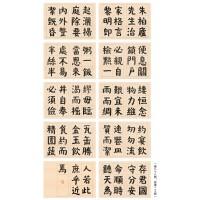 朱柏廬
先生治
家格言
黎明即
起灑掃
庭除要
內外整
潔既昏
便息關
鎖門戶
必親自
檢點一
粥一飯
當思來
處不易
半絲半
縷恒念
物力維
艱宜未
雨而綢
繆毋臨
渴而掘
井自奉
必須儉
約宴
切勿留
連器
質而潔
瓦缶勝
金玉飲
食約而
精園蔬
存君國
守分安
命順時
聽天為
人若此
庶乎近
焉